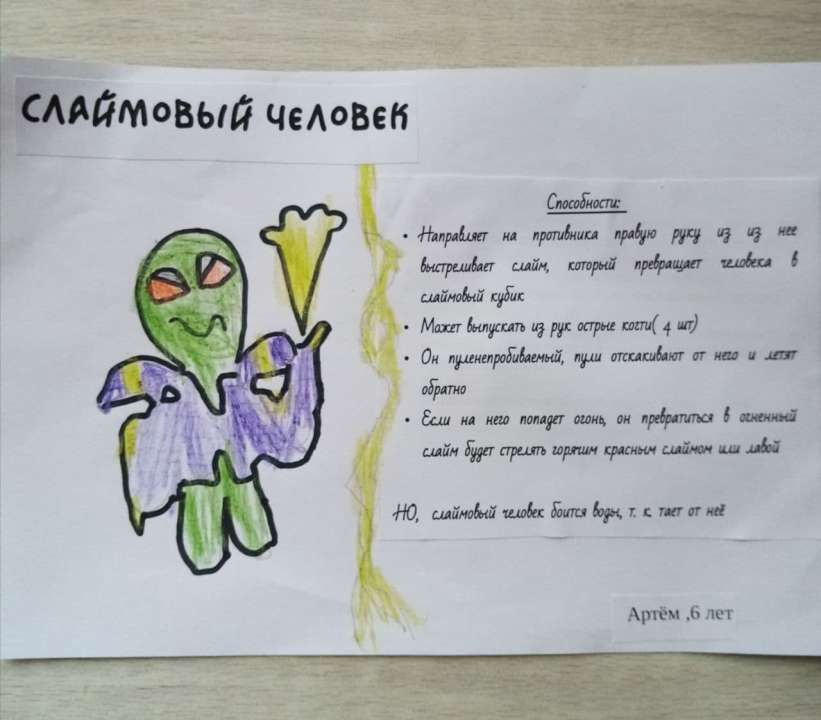 СЛАЙМОВЫЙ ЧЕЛОВЕК
Способности:
• Направляет на противника правую руку из из нее
выстреливает слайм, который превращает человека в
слаймовый кубик
• Может выпускать из рук острые когти( 4 шт)
• Он пуленепробиваемый, пули отскакивают от него и летят
обратно
• Если на него попадет огонь, он превратиться в огненный
слайм будет стрелять горячим красным слаймом или лавой
НО, слаймовый человек боится воды, т. к. тает от неё
Артём ,6 лет